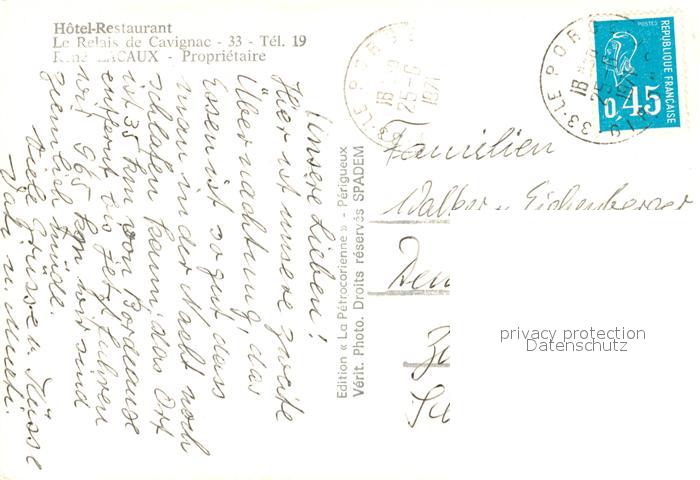 Hôtel-Restaurant
Le Relais de Cavignac - 33 - Tél. 19
René LACAUX - Propriétaire
Unsere Lieben!
Hier ist unsere zweite
Übernachtung, das
Essen ist so gut dass
man in der Nacht noch
schlafen kann, das Ort
ist 35 km von Bordeaux
entfernt bis jetzt fuhren
wir 965 km wir sind
ziemlich müde.
Viele Grüsse u. Küsse
Vati u. Mutti.
Edition « La Pétrocorienne » - Périgueux
Vérit. Photo. Droits réservés SPADEM
33 LE PO
18 H
25-6
1971
33 LE POR
18 H
25-6
1971
POSTES
REPUBLIQUE FRANÇAISE
0,45
Familien
Walker - Eichenberger
privacy protection
Datenschutz